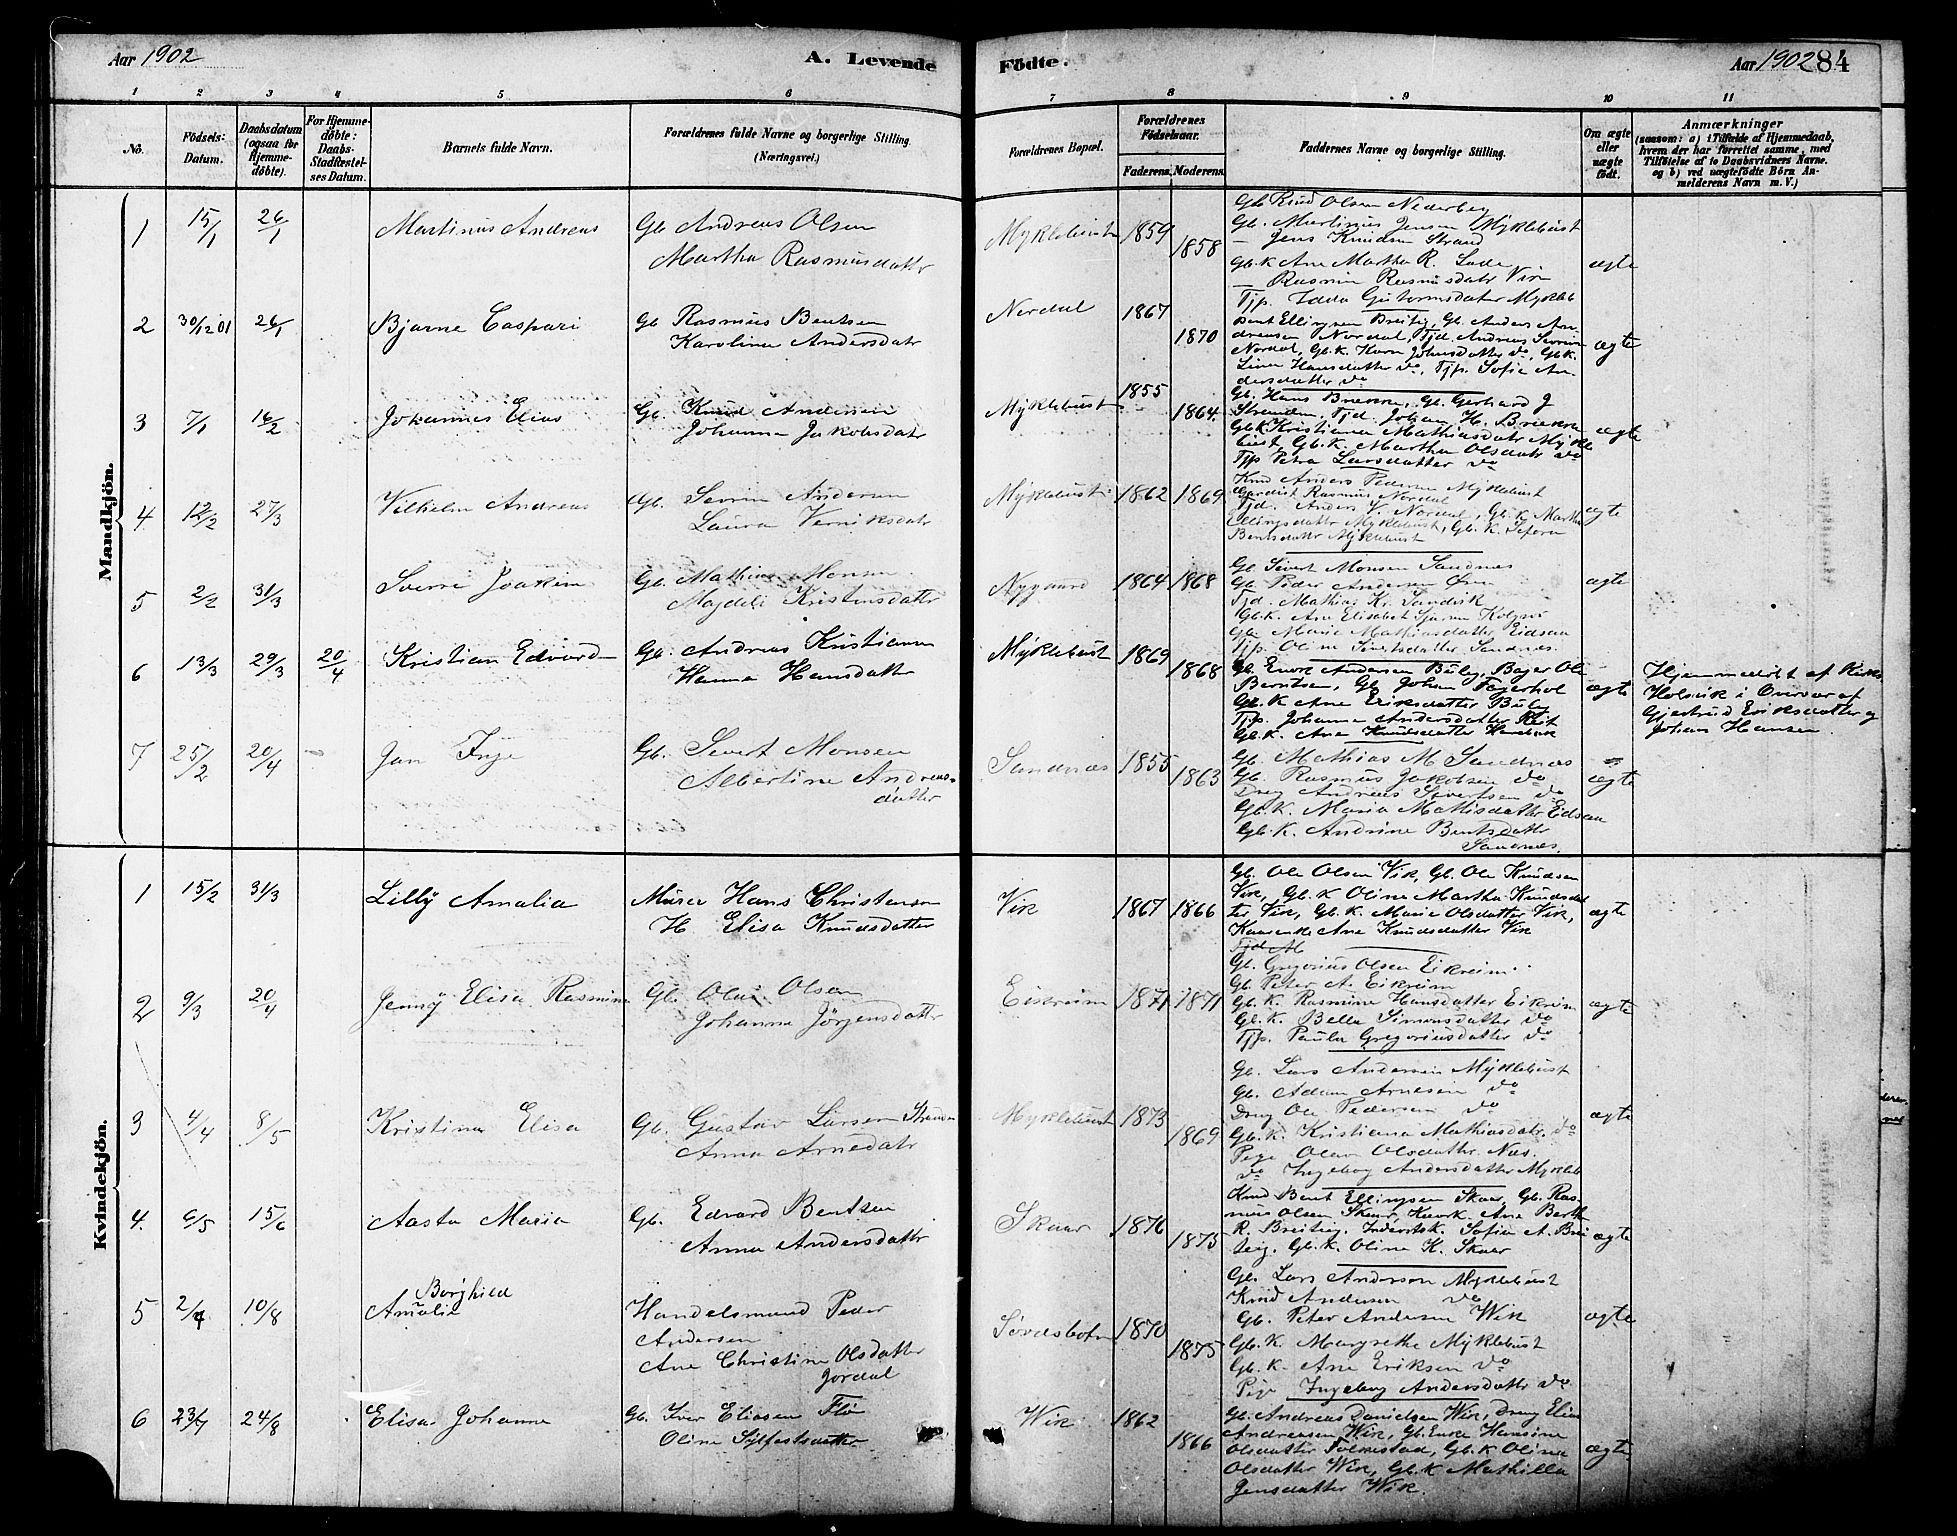 Aar 1902
A. Levende
Födte.
Aar 1902
84
1 2 3 4 5 6 7 8 9 10 11
No.
Födsels-
Datum.
Daabsdatum
(ogsaa for
Hjemme-
döbte).
For Hjemme-
döbte:
Daabs-
Stadfæstel-
ses Datum.
Barnets fulde Navn.
Forældrenes fulde Navne og borgerlige Stilling
(Næringsvei.)
Forældrenes Bopæl.
Forældrenes
Födselsaar.
Faderens. Moderens.
Faddernes Navne og borgerlige Stilling.
Om ægte
eller
uægte
födt.
Anmærkninger
(saasom: a) i Tilfælde af Hjemmedaab,
hvem der har forrettet samme, med
Tilföielse af to Daabsvidners Navne.
og b) ved uægtefödte Börn An-
melderens Navn m. V.)
Mandkjön.
1 15/1 26/1 Martinus Andreas
Gb Andreas Olsen
Martha Rasmusdatr
Myklebust 1859 1858
Gb Knud Olsen Nederberg
Gb. Martinus Jensen Myklebust
– Jens Knudsen Strand
Gb.K Ane Martha R. Lade
– Rasmine Rasmusdatr Vik
Tjp. Guttormsdatter Mykleb
ægte
2 30/12 01 26/1 Bjarne Caspari
Gb Rasmus Bentsen
Karolina Andersdatr
Nordal 1867 1870
Bent Ellingsen Breiteig, Gb. Anders An-
dreasen Nordal, Tjd. Andreas
Nordal, Gb.K. Johnsdatter do, Gb.K.
Lina Hansdatter do, Tjp. Sofie An-
dersdatter do
ægte
3 7/1 16/2 Johannes Elias
Gb. Knud Andersen
Johanna Jakobsdatr
Myklebust 1855 1864.
Gb. Hans, Gb. Gerhard J
Stranden, Tjd. Johan H.
Gb.K Kristiana Mathiasdatr Mykle
bust, Gb.K. Martha Olsdatr do
Tjp Petra Larsdatter do
ægte
4 12/2 27/3 Vilhelm Andreas
Gb. Severin Andersen
Laura
Myklebust 1862 1869
Knud Anders Pedersen Myklebust
Gardist Rasmus Nordal
Tjd. Anders V. Nordal, Gb.K Martha
Ellingsdatter Myklebust, Gb. K.
Bentsdatter Myklebust
ægte
5 2/2 31/3 Sverre Joakim
Gb. Mathias Monsen
Magdeli Kristensdattr
Nygaard 1864 1868
Gb Sivert Monsen Sandnes
Gb Peder Andersen
Tjd. Mathias Kr. Sandvik
Gb.K. Ane Elisabet
Gb. Marie Mathiasdatter Eidsaa
Tjp. Oline Sivertsdatter Sandnes.
ægte
6 13/3 29/3 20/4 Kristian Edvard
Gb. Andreas Kristiansen
Hanna Hansdatter
Myklebust 1869 1868
Gb. Andersen, Ole
Berntsen, Gb. Johan
Gb.K Ane Eriksdatter
Tjp. Johanne Andersdatter
Gb.K. Ane Knudsdatter
ægte
Hjemmedöbt af
i Overvær af
Gjertrud Eriksdatter og
Johan Hansen.
7 25/2 20/4 – Jan Inge
Gb. Sivert Monsen
Albertine Andreas-
datter
Sandnæs 1855 1863
Gb. Mathias M Sandnæs
Gb. Rasmus Jakobsen do
Dreng Andreas Sivertsen do
Gb.K. Maria datter Eidsaa
Gb.K. Andrine Bentsdattr
Sandnes.
ægte
Kvindekjön.
1 15/2 31/3 Lilly Amalia
Murer Hans Christensen
H. Elisa Knudsdatter
Vik 1867 1866
Gb. Ole Olsen Vik, Gb. Ole Knudsen
Vik, Gb. K Oline Martha Knudsdat
ter Vik, Gb.K. Marie Olsdatter Vik,
Ane Knudsdatter Vik
ægte
2 9/3 20/4 Jenny Elisa Rasmine
Gb. Olai Olsen
Johanna Jörgensdattr
Eikreim 1871 1871
Gb. Gregorius Olsen Eikreim
Gb. Peter A. Eikreim
Gb.K. Rasmine Hansdatter Eikreim
Gb.K. Bella Simonsdatter do
Tjp. Paula Gregoriusdatter do
ægte
3 4/4 8/5 Kristina Elisa
Gb. Gustav Larsen
Anna Arnedatr
Myklebust 1873 1869
Gb. Lars Andersen Myklebust
Gb. Adam Arnesen do
Dreng Ole Pedersen do
Gb.K. Kristiana Mathiasdatr. do
Pige Olsdatter Næs.
do Ingeborg Andersdatter Mykleb
ægte
4. 6/5 15/6 Aasta Maria
Gb. Edvard Bentsen
Anna Andersdattr
Skaar 1876 1875
Knud Bent Ellingsen Skaar, Gb. Ras-
mus Olsen Skaar, Ane Berthe
R. Breiteig, Sofie A. Brei
teig, Gb.K. Oline K. Skaar
ægte
5 2/7 10/8 Borghild
Amalie
Handelsmand Peder
Andersen
Ane Christine Olsdatter
Jordal
1870 1875
Gb. Lars Andersen Myklebust
Knud Andersen do
Gb. Peter Andersen Wik
Gb.K. Margrethe Myklebust
Gb.K. Ane Eriksen do
Pige Ingeborg Andersdattr do
ægte
6 23/7 24/8 Elisa Johanna
Gb. Iver Eliasen Flö
Oline Sylfestsdatter
Wik 1862 1866
Gb. Andreas Danielsen Wik, Dreng Elias
Andreasen Wik, Gb.Enke Hansine
Olsdatter Folkestad, Gb.K Oline
Olsdatter Wik, Gb.K Mathilla
Jensdatter Wik.
ægte